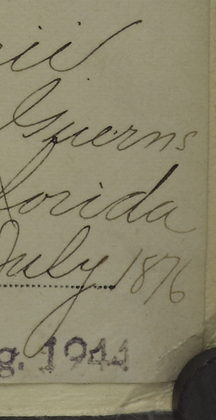 rii
Guerns
lorida
July 1876
g. 1944